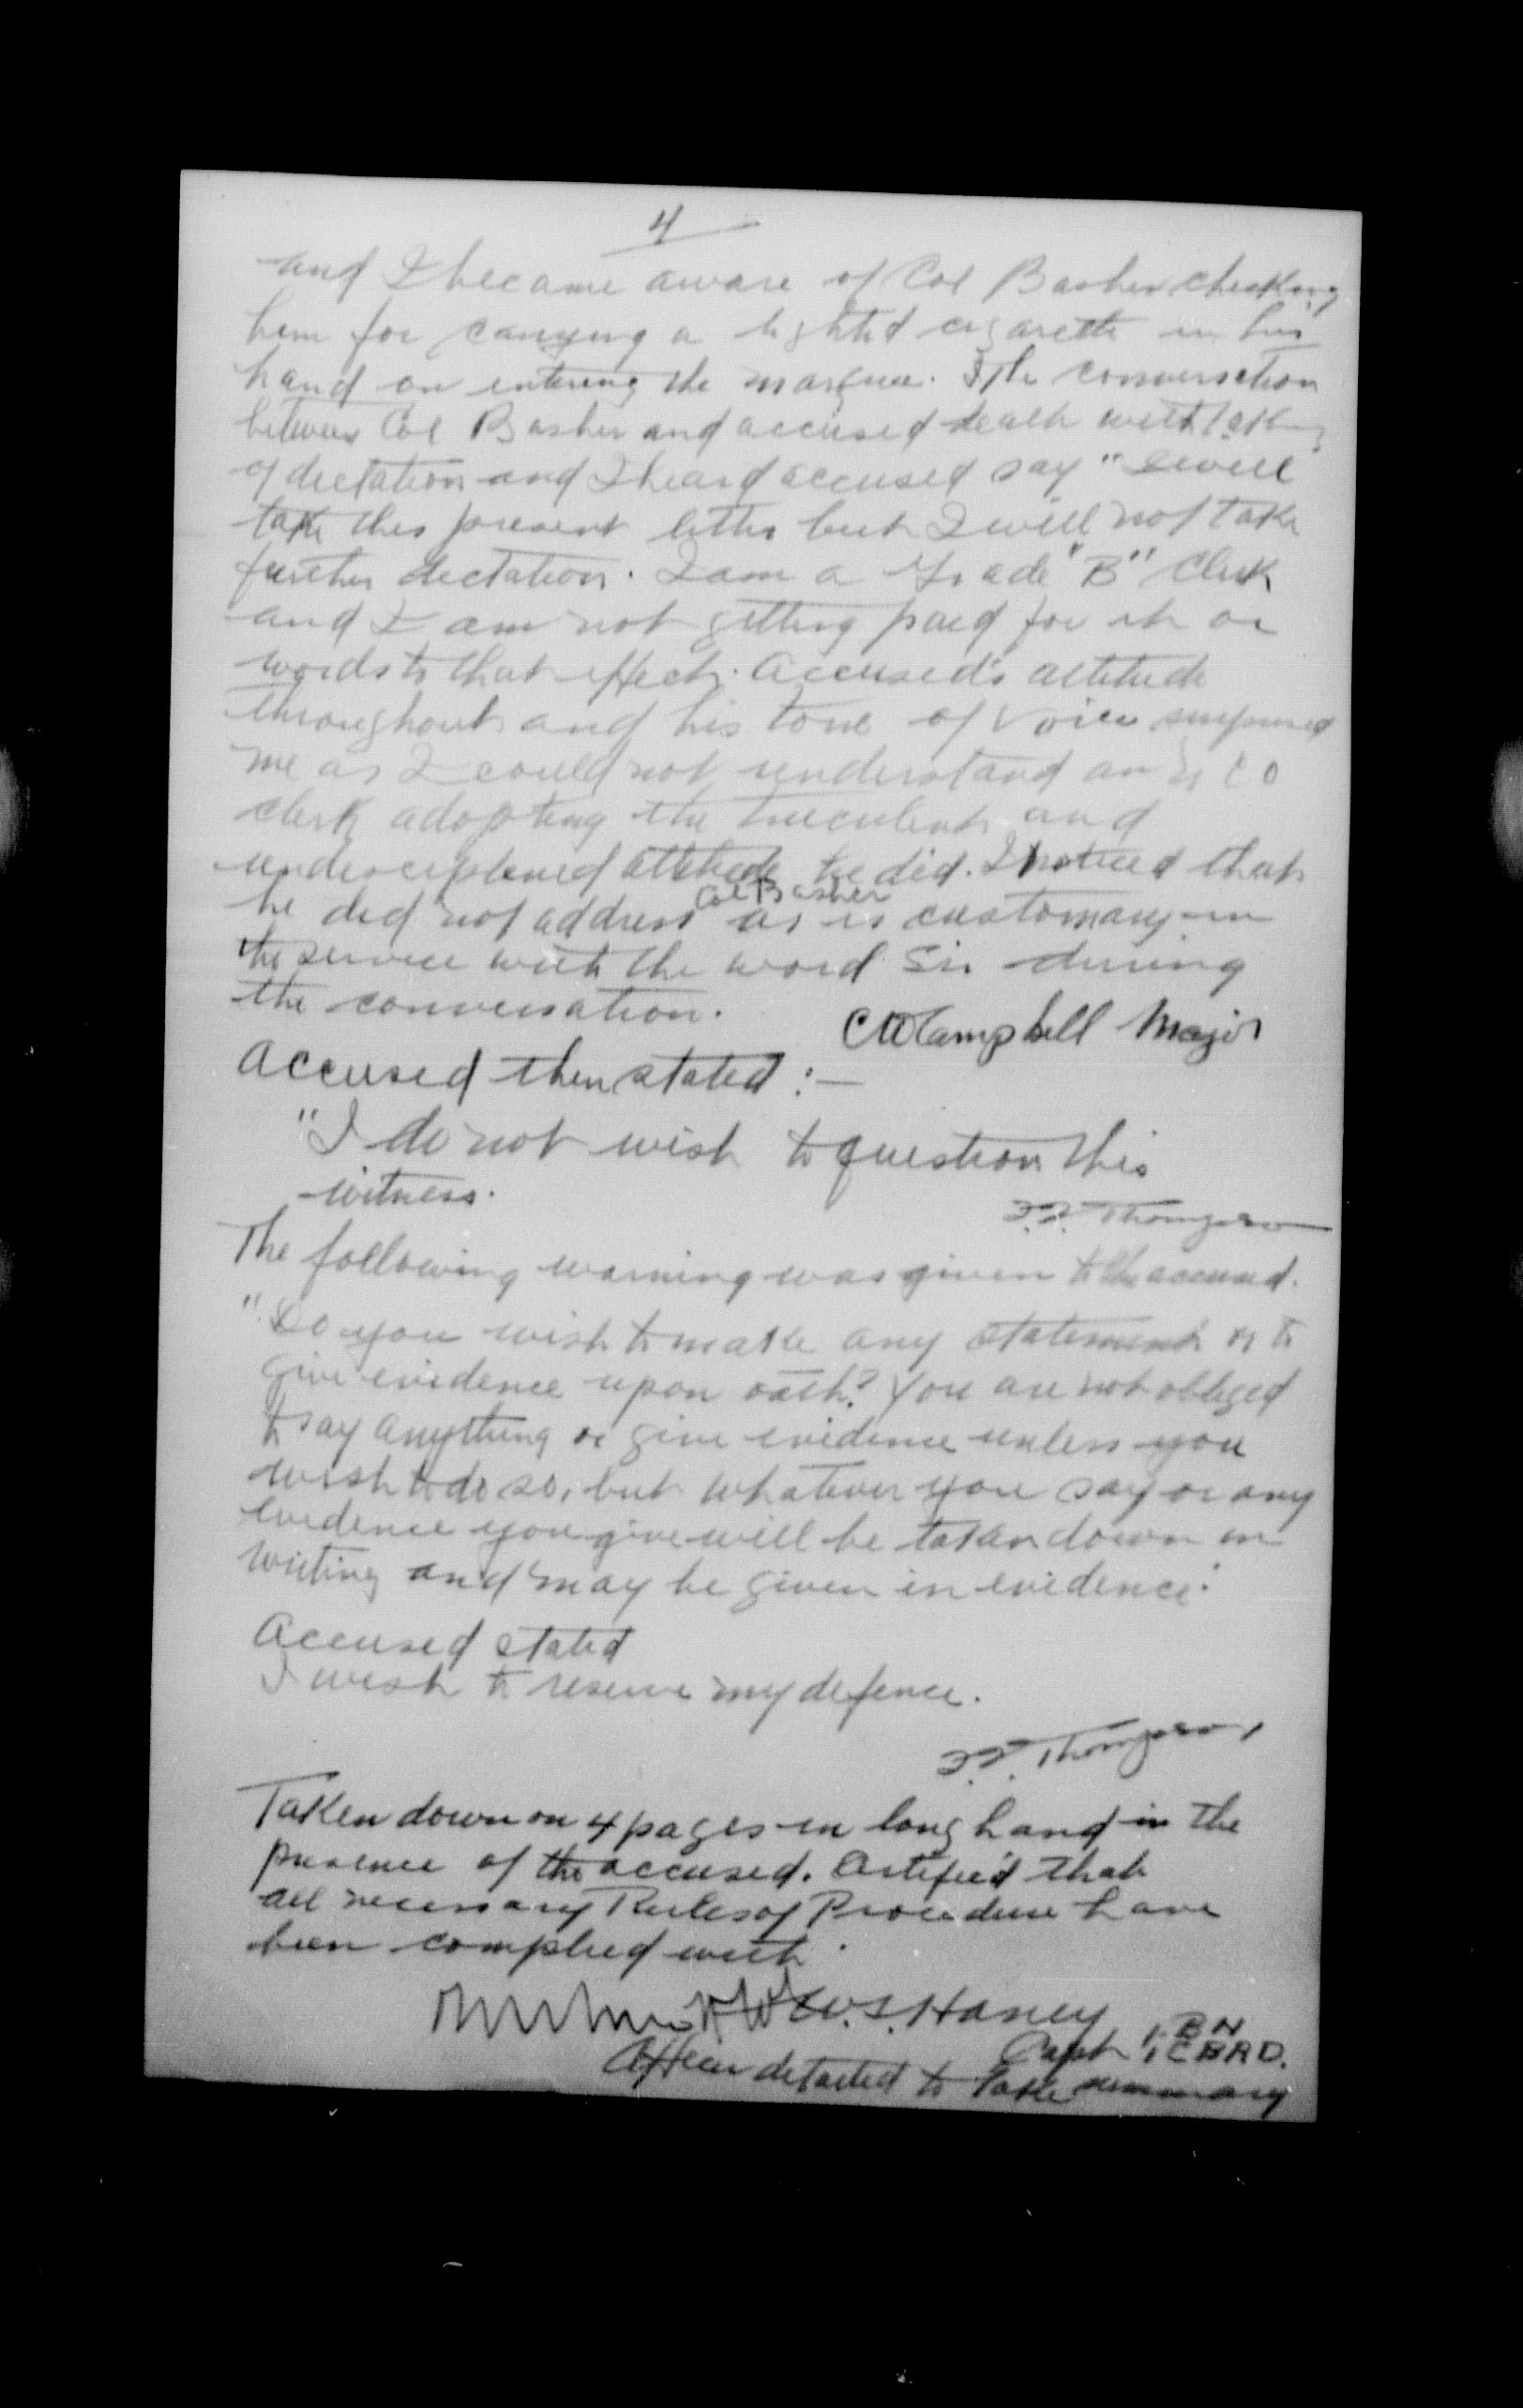 4
and I became aware of Col Basher checking
him for carrying a lighted cigarette in his
hand on entering the marquee. The conversation
between Col Basher and accused dealt with taking
of dictation and I heard accused say "I will
take this present letter but I will not take
further dictation. I am a Grade "B" Clerk
and I am not getting paid for it or
words to that effect. Accused's attitude
throughout and his tone of voice surprised
me as I could not understand an N C O
clerk adopting the truculent and
undisciplined attitude he did. I noticed that
Col Basher
he did not address as is customary in
the service with the word Sir during
the conversation.
CW Campbell Major
Accused then stated :—
"I do not wish to question this
witness.
Thompson
The following warning was given to the accused.
"Do you wish to make any statement or to
give evidence upon oath? You are not obliged
to say anything or give evidence unless you
wish to do so, but whatever you say or any
evidence you give will be taken down in
writing and may be given in evidence."
Accused stated
I wish to reserve my defence.
Thompson
Taken down on 4 pages in long hand in the
presence of the accused. Certified that
all necessary Rules of Procedure have
been complied with.
W.S. Haney
Capt 1 BN
1 CBRD.
Officer detailed to take summary